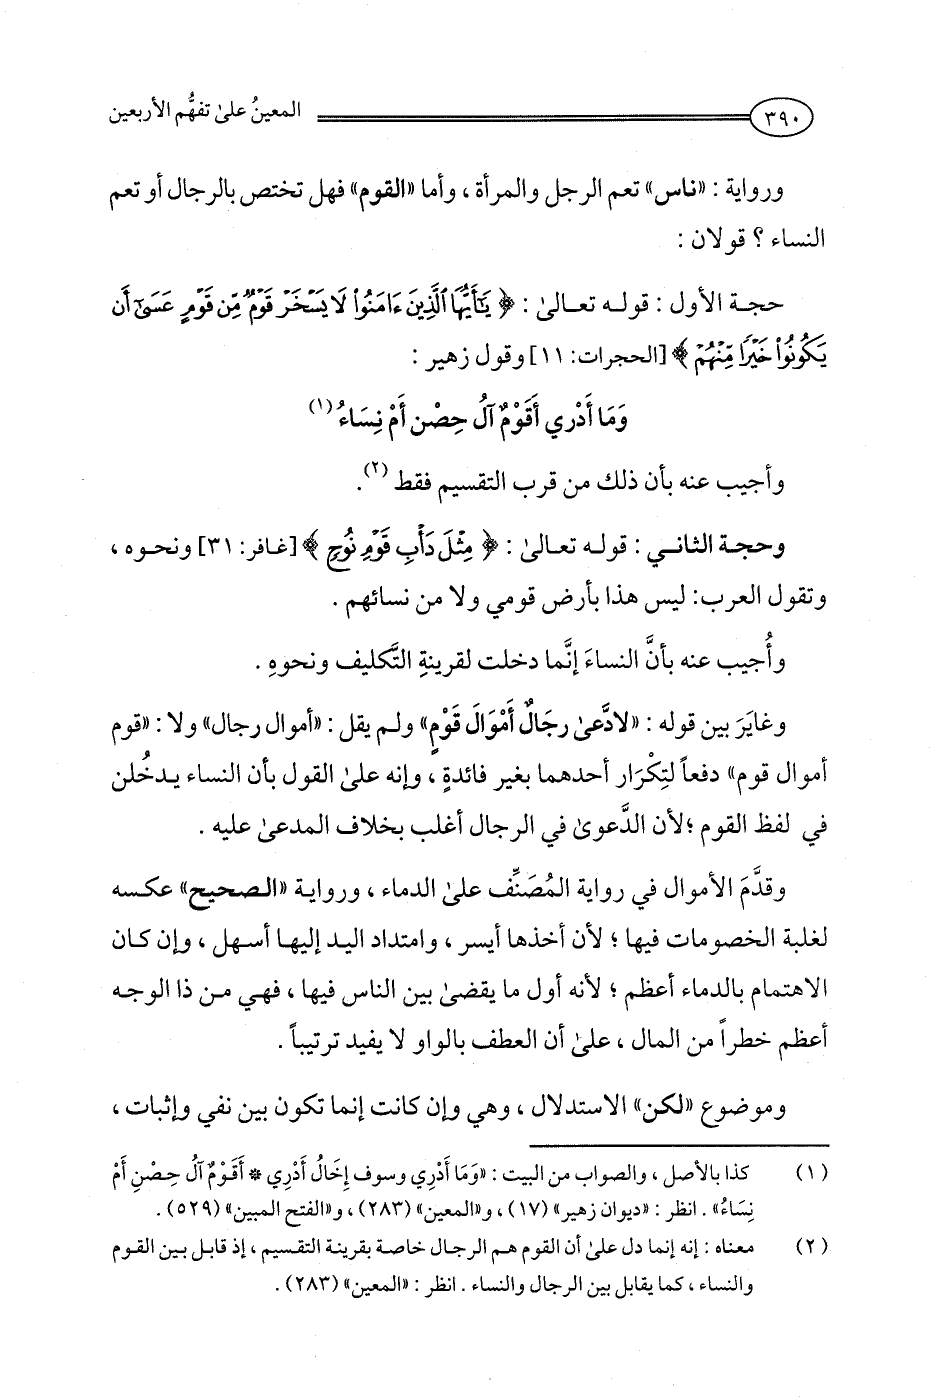 ٣٩٠ المعينُ علىٰ تفهُّم الأربعين
ورواية : «ناس» تعم الرجل والمرأة ، وأما «القوم» فهل تختص بالرجال أو تعم
النساء ؟ قولان :
حجة الأول : قوله تعالىٰ : ﴿ يَٰٓأَيُّهَا ٱلَّذِينَ ءَامَنُوا۟ لَا يَسْخَرْ قَوْمٌ مِّن قَوْمٍ عَسَىٰٓ أَن
يَكُونُوا۟ خَيْرًا مِّنْهُمْ ﴾ [الحجرات: ١١] وقول زهير :
وَمَا أَدْري أَقَوْمٌ آلُ حِصْن أَمْ نِسَاءُ (١)
وأجيب عنه بأن ذلك من قرب التقسيم فقط (٢).
وحجة الثاني : قوله تعالىٰ : ﴿ مِثْلَ دَأْبِ قَوْمِ نُوحٍ ﴾ [غافر: ٣١] ونحوه ،
وتقول العرب: ليس هذا بأرض قومي ولا من نسائهم .
وأُجيب عنه بأنَّ النساءَ إنَّما دخلت لقرينةِ التَّكليف ونحوهِ .
وغايَرَ بين قوله : «لادَّعىٰ رجَالٌ أَمْوَالَ قَوْمٍ» ولم يقل : «أموال رجال» ولا : «قوم
أموال قوم» دفعاً لتِكْرَار أحدهما بغير فائدةٍ ، وإنه علىٰ القول بأن النساء يدخُلن
في لفظ القوم ؛لأن الدَّعوىٰ في الرجال أغلب بخلاف المدعىٰ عليه .
وقدَّمَ الأموال في رواية المُصَنِّف علىٰ الدماء ، ورواية «الصحيح» عكسه
لغلبة الخصومات فيها ؛ لأن أخذها أيسر ، وامتداد اليد إليها أسهل ، وإن كان
الاهتمام بالدماء أعظم ؛ لأنه أول ما يقضىٰ بين الناس فيها ، فهي من ذا الوجه
أعظم خطراً من المال ، علىٰ أن العطف بالواو لا يفيد ترتيباً .
وموضوع «لكن» الاستدلال ، وهي وإن كانت إنما تكون بين نفي وإثبات ،
(١) كذا بالأصل ، والصواب من البيت : «وَمَا أَدْري وسوف إِخَالُ أَدْري * أَقَوْمٌ آلُ حِصْنٍ أَمْ
نِسَاءُ» . انظر : «ديوان زهير» (١٧) ، و«المعين» (٢٨٣) ، و«الفتح المبين» (٥٢٩) .
(٢) معناه : إنه إنما دل علىٰ أن القوم هم الرجال خاصة بقرينة التقسيم ، إذ قابل بين القوم
والنساء ، كما يقابل بين الرجال والنساء . انظر : «المعين» (٢٨٣) .